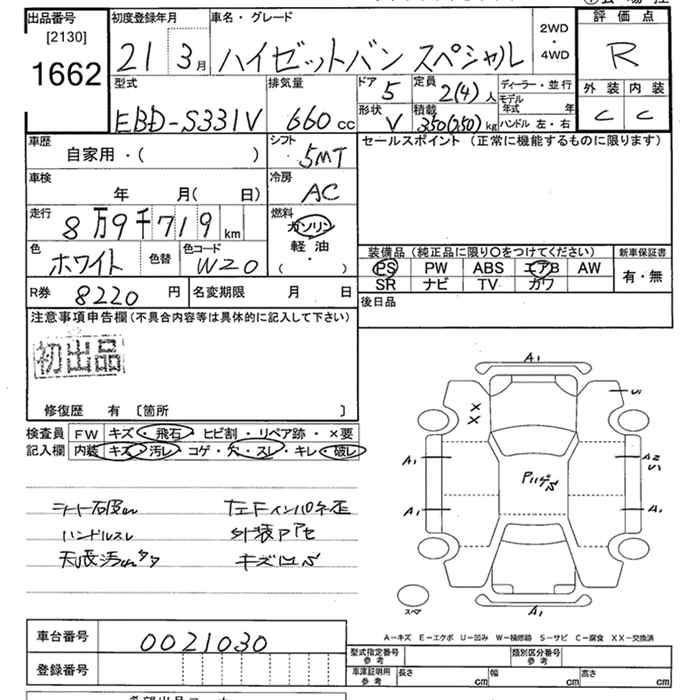 出品番号
[2130]
1662
初度登録年月
21 3月
車名・グレード
ハイゼットバン スペシャル
2WD
・
4WD
評価点
R
外装 内装
C C
型式
EBD-S331V
排気量
660 cc
ドア
5
定員
2(4)人
形状
V
積載
350(250)kg
ディーラー・並行
モデル年式 年
ハンドル 左・右
車歴
自家用・( )
シフト
5MT
車検
年 月(日)
冷房
AC
走行
8万9千719 km
燃料
ガソリン
軽油
( )
色
ホワイト
色替
色コード
W20
R券 8220 円
名変期限 月 日
セールスポイント (正常に機能するものに限ります)
装備品(純正品に限り〇をつけてください)
PS PW ABS エアB AW
SR ナビ TV カワ
新車保証書
有・無
後日品
注意事項申告欄(不具合内容等は具体的に記入して下さい)
初出品
修復歴 有 〔箇所 〕
検査員記入欄
FW キズ・飛石・ヒビ割・リペア跡・×要
内装 キズ・汚レ・コゲ・穴・スレ・キレ・破レ
ハンドルスレ
左Fインパネ歪
外装Pアセ
A1
U1
XX
A1
A2
U1
A1
A1
A1
スペア
A−キズ E−エクボ U−凹み W−補修跡 S−サビ C−腐食 XX−交換済
車台番号 0021030
登録番号
型式指定番号
参考
類別区分番号
参考
車庫証明用
参考
長さ cm
幅 cm
高さ cm